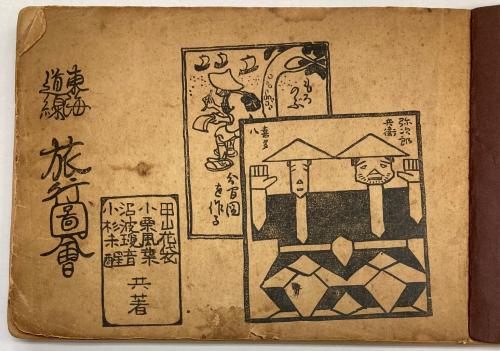 東海
道線
旅行圖會
田山花袋
小栗風葉
沼波瓊音
小杉未醒
共著
もろ
のぶ
今百圖
を作る
弥次郎
兵衛
喜多
八